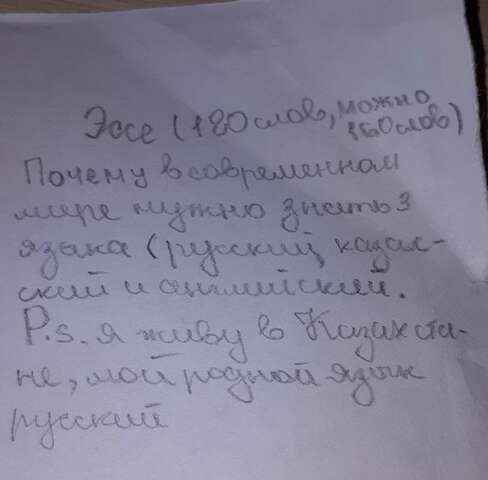 Эссе (180 слов, можно
160 слов)
Почему в современном
мире нужно знать 3
языка (русский, казах-
ский и английский.
P.s. я живу в Казахста-
не, мой родной язык
русский